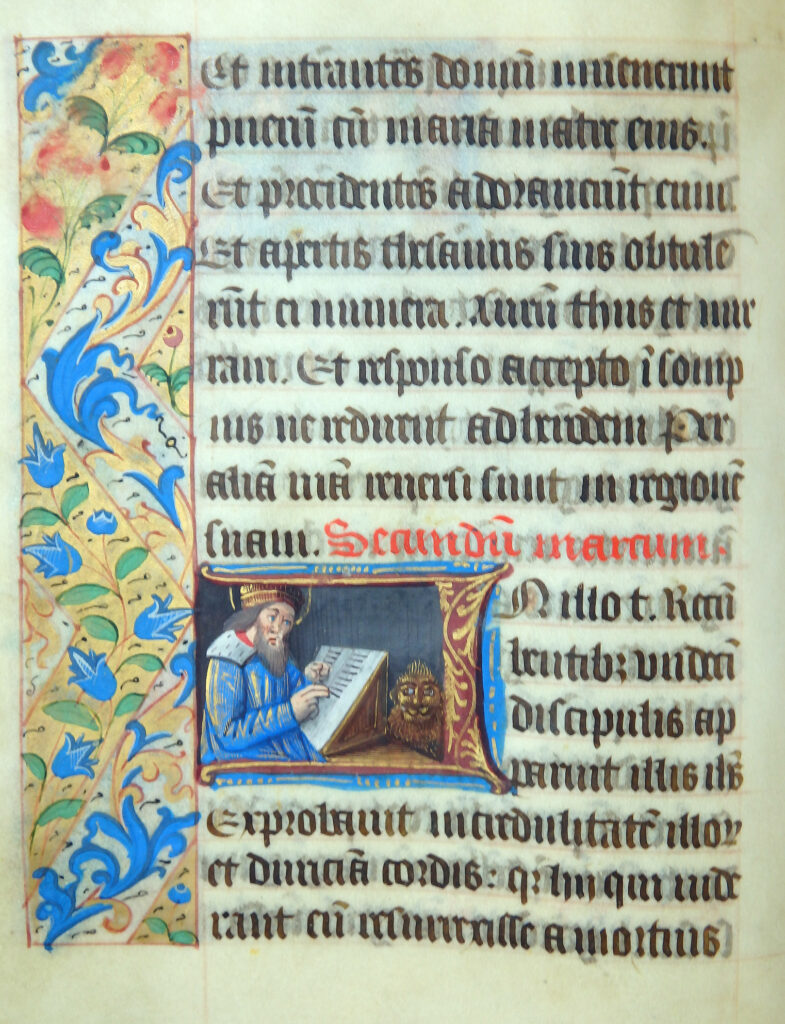 Et intrantes domũ inuenerunt
puerũ cũ maria matre eius.
Et procidentes adorauerũt eum
Et apertis thesauris suis obtule
rũt ei munera. Aurũ thus et mir
ram. Et responso accepto ĩ somp
nis ne redirent ad herodem Per
aliã uiã reuersi sunt in regionẽ
suam. Secundũ marcum.
N illo t. Recũ
bentibꝫ undeci
discipulis ap
paruit illis ihs̃
Exprobauit incredulitatẽ illoꝝ
et duriciã cordis: qr̃ hij qui uide
rant eũ resurrexisse a mortuis